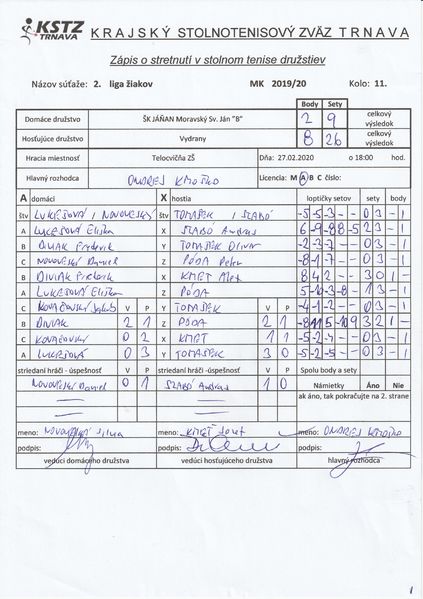 KSTZ TRNAVA KRAJSKÝ STOLNOTENISOVÝ ZVÄZ TRNAVA
Zápis o stretnutí v stolnom tenise družstiev
Názov súťaže: 2. liga žiakov MK 2019/20 Kolo: 11.
Body Sety
Domáce družstvo ŠK JÁŇAN Moravský Sv. Ján "B" 2 9 celkový výsledok
Hosťujúce družstvo Vydrany 8 26 celkový výsledok
Hracia miestnosť Telocvičňa ZŠ Dňa: 27.02.2020 o 18:00 hod.
Hlavný rozhodca ONDREJ KMOŤKO Licencia: M A B C číslo:
A domáci X hostia loptičky setov sety body
štv LUKEŠOVÁ / NOVOVESKÝ štv TOMAŠEK / SZABÓ -5 -5 -3 - - 0 3 - 1
A LUKEŠOVÁ Eliška X SZABÓ Andras 6 -9 -8 8 -5 2 3 - 1
B DIVIAK Frederik Y TOMAŠEK Oliver -2 -3 -7 - - 0 3 - 1
C NOVOVESKÝ Daniel Z PÓDA Peter -8 -1 -7 - - 0 3 - 1
B DIVIAK Frederik X KMEŤ Alex 8 4 2 - - 3 0 1 -
A LUKEŠOVÁ Eliška Z PÓDA 5 -10 -3 -8 - 1 3 - 1
C KOVAČOVSKÝ Jakub V P Y TOMAŠEK V P -4 -1 -2 - - 0 3 - 1
B DIVIAK 2 1 Z PÓDA 2 1 -8 11 5 -10 9 3 2 1 -
C KOVAČOVSKÝ 0 2 X KMEŤ 1 1 -5 -2 -4 - - 0 3 - 1
A LUKEŠOVÁ 0 3 Y TOMAŠEK 3 0 -5 -2 -5 - - 0 3 - 1
striedaní hráči - úspešnosť V P striedaní hráči - úspešnosť V P Spolu body a sety
NOVOVESKÝ Daniel 0 1 SZABÓ Andras 1 0 Námietky Áno Nie
ak áno, tak pokračujte na 2. strane
meno: NOVOVESKÝ meno: KMEŤ Jozef meno: ONDREJ KMOŤKO
podpis: podpis: podpis:
vedúci domáceho družstva vedúci hosťujúceho družstva hlavný rozhodca
1